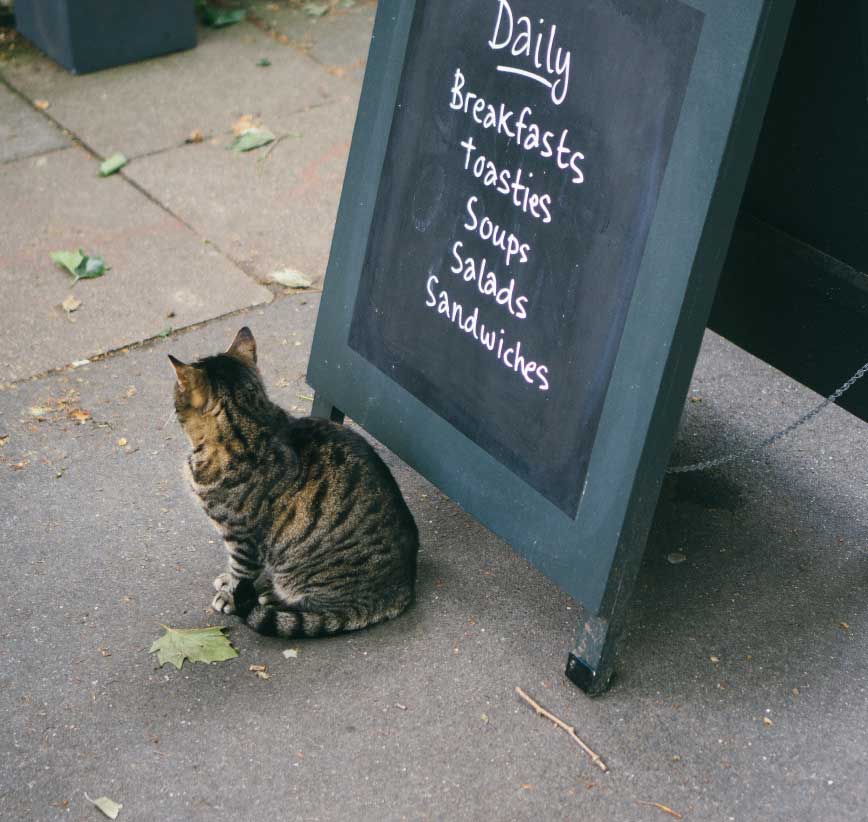 Daily
Breakfasts
Toasties
Soups
Salads
Sandwiches